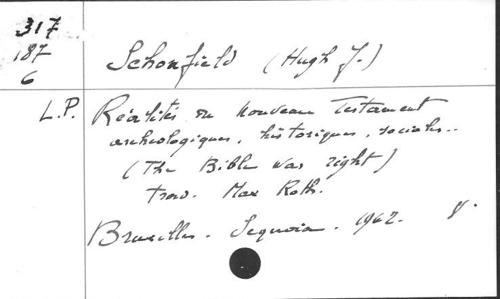 317
187
6
Schonfield (Hugh J.)
L.P. Réalités du nouveau Testament
archéologiques, historiques, sociales..
(The Bible was right)
trad. Max Roth.
Bruxelles. Sequoia. 1962.